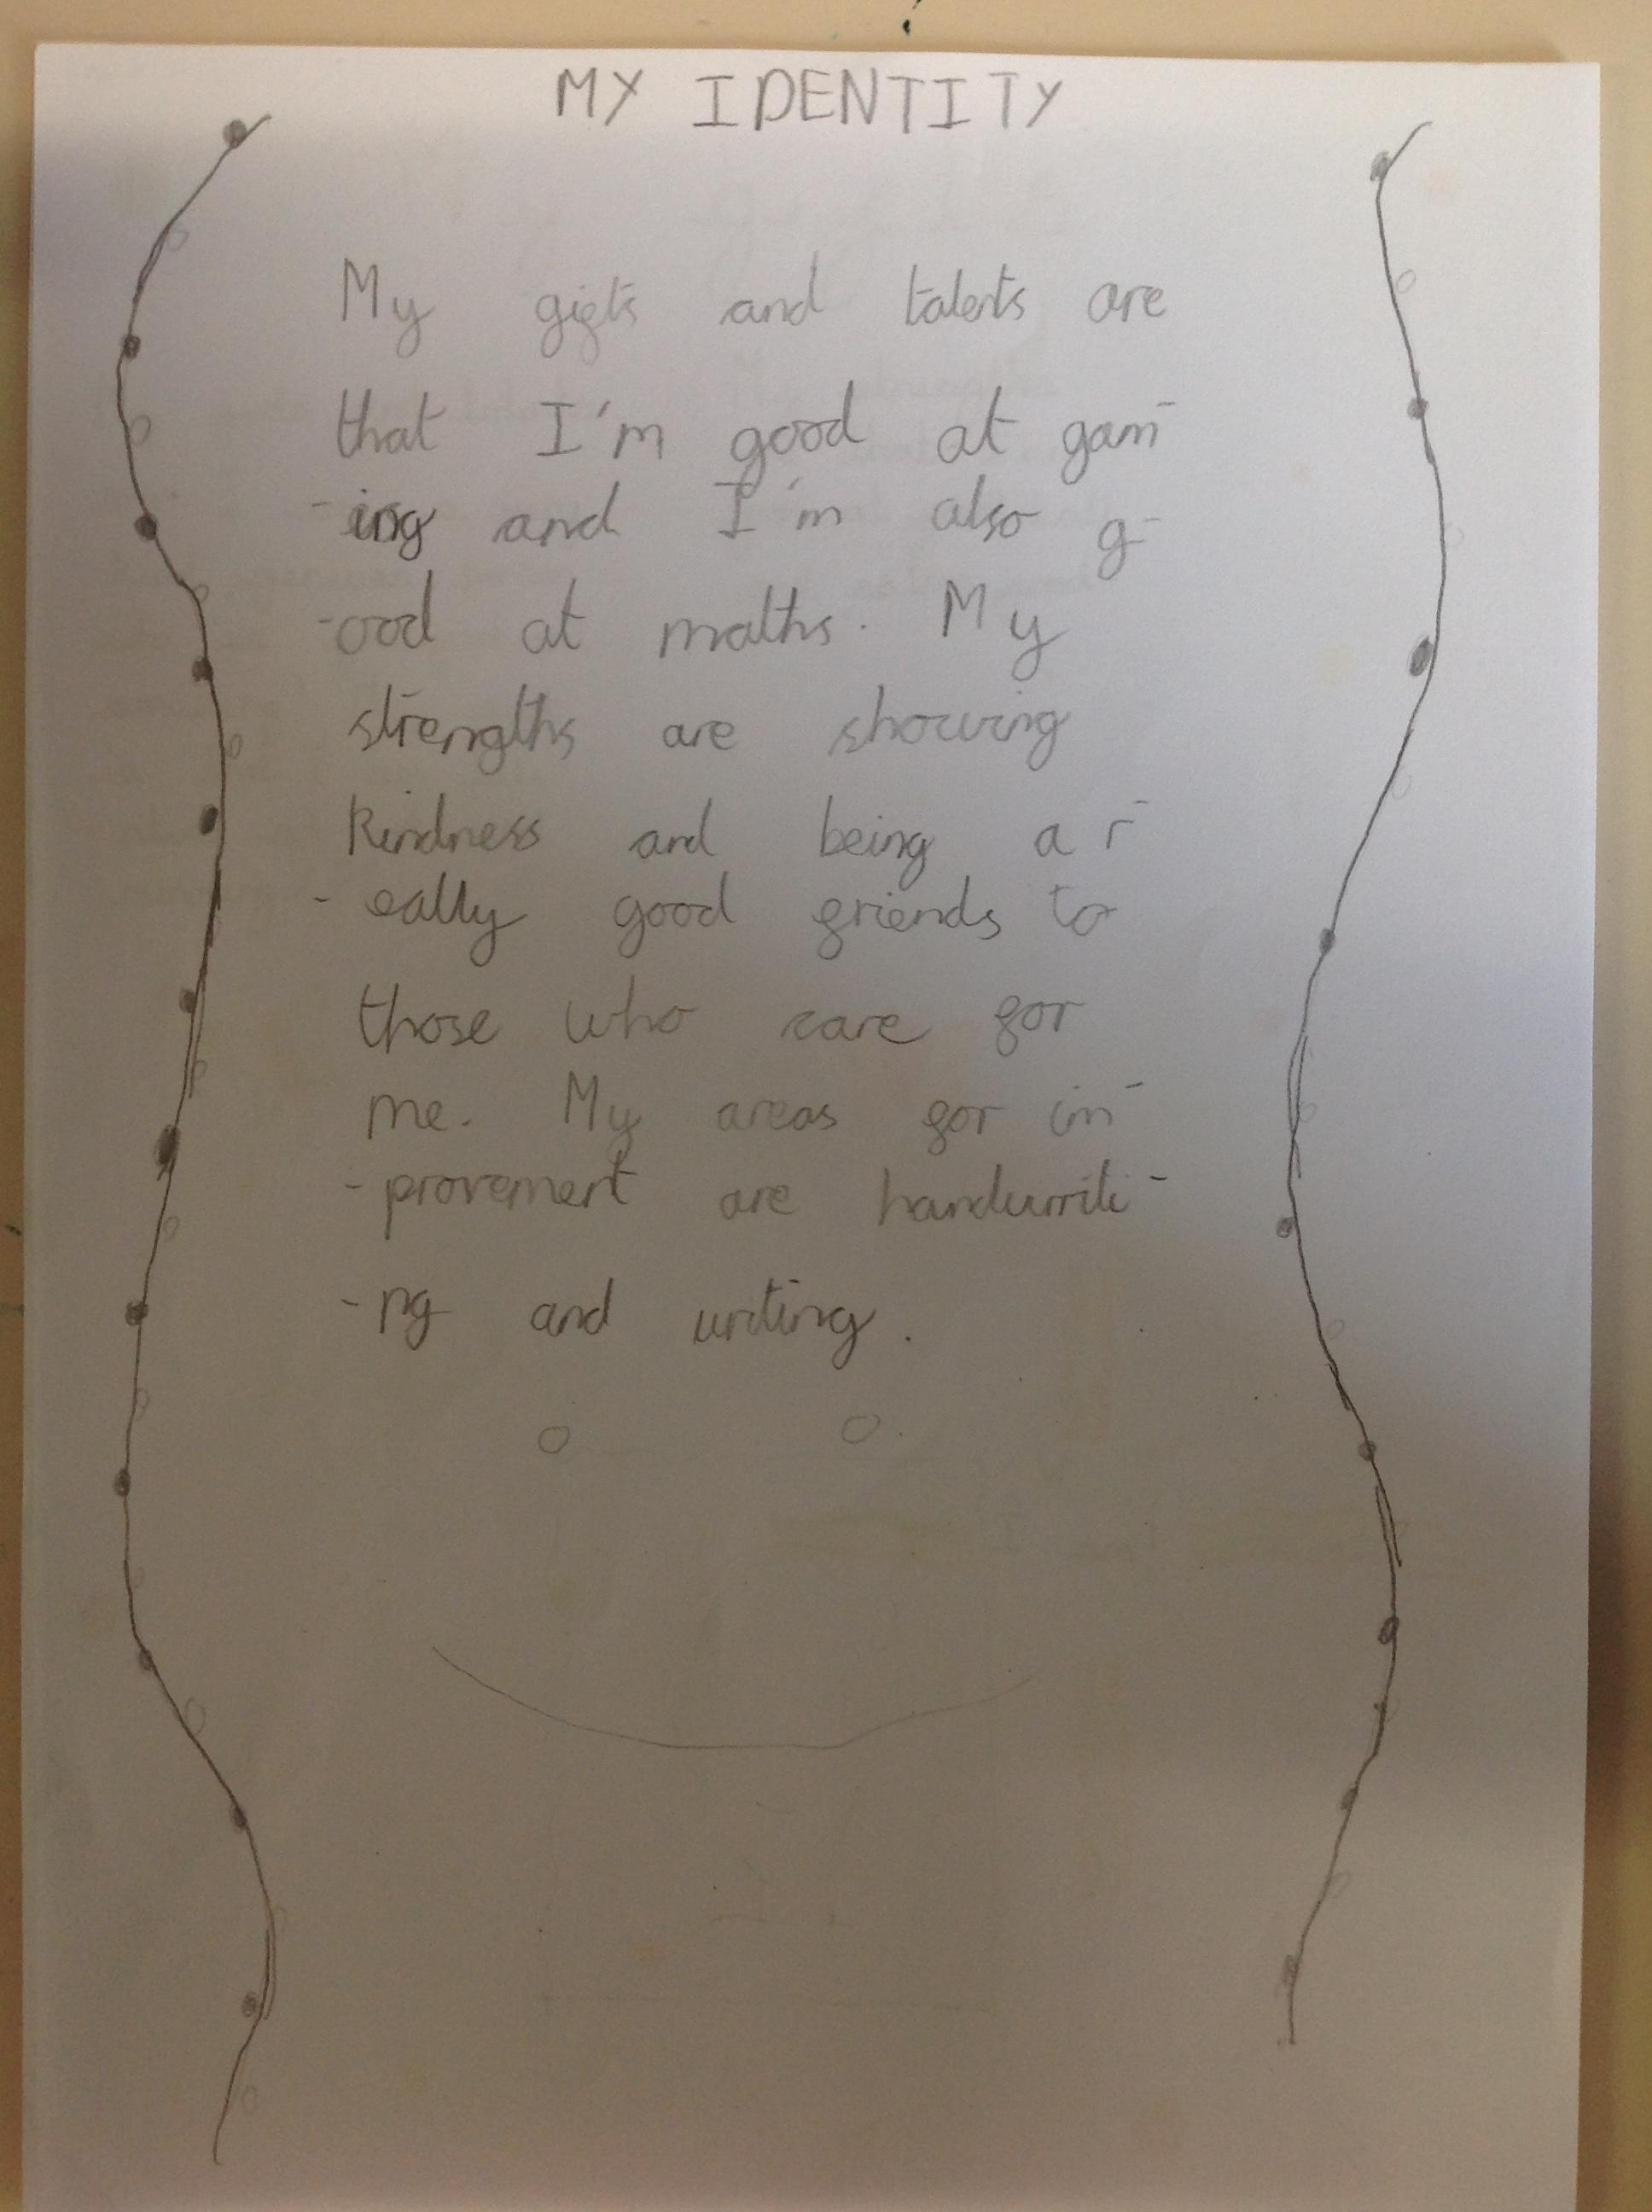 MY IDENTITY
My gifts and talents are
that I'm good at gam-
-ing and I'm also g-
-ood at maths. My
strengths are showing
kindness and being a r-
-eally good friends to
those who care for
me. My areas for im-
-provement are handwriti-
-ng and writing.